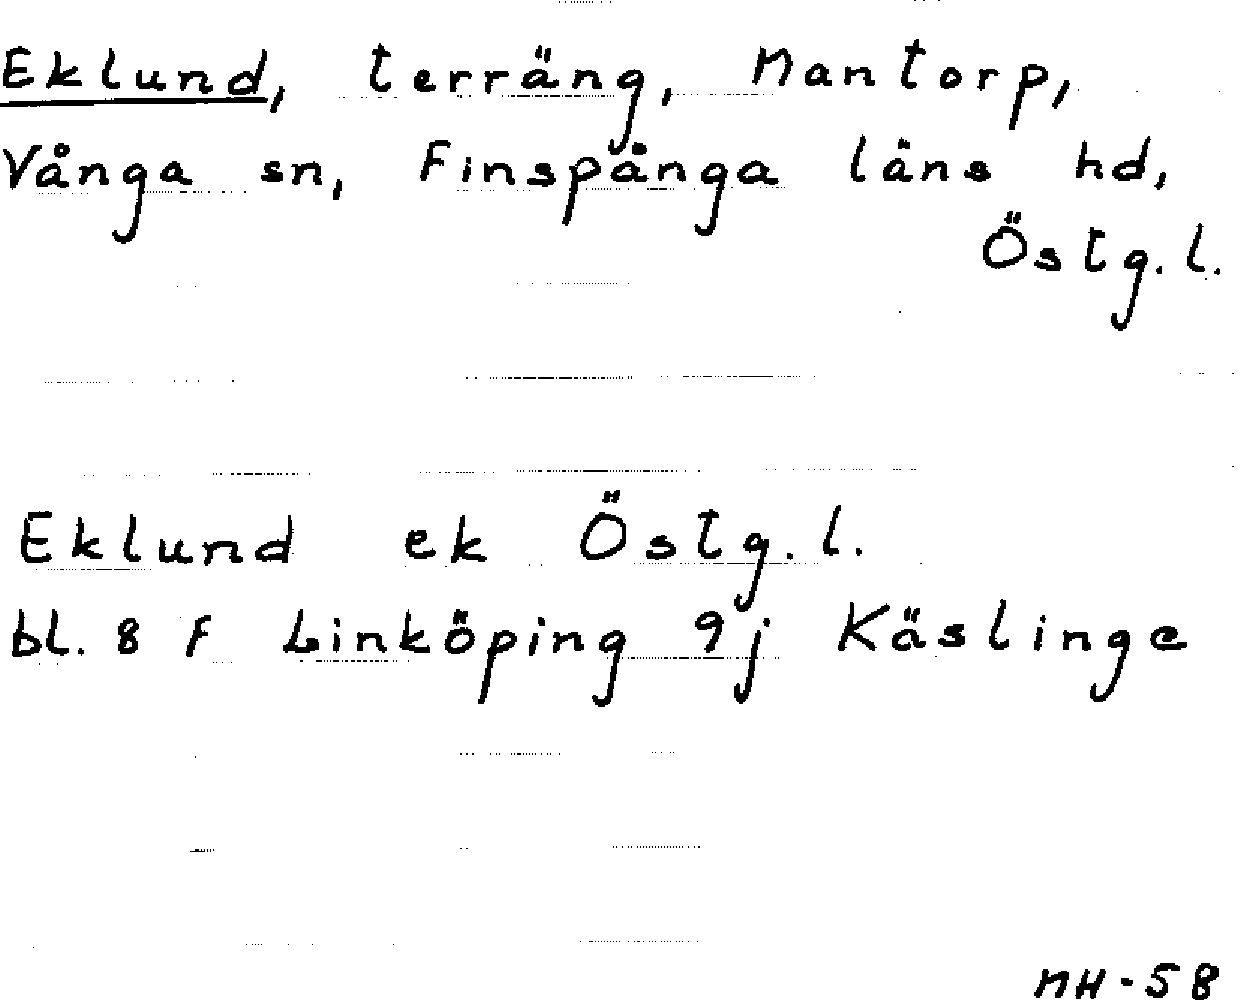 Eklund, terräng, Mantorp,
Vånga sn, Finspånga läns hd,
Östg.l.
Eklund ek Östg.l.
bl. 8 F Linköping 9j Käslinge
NH-58